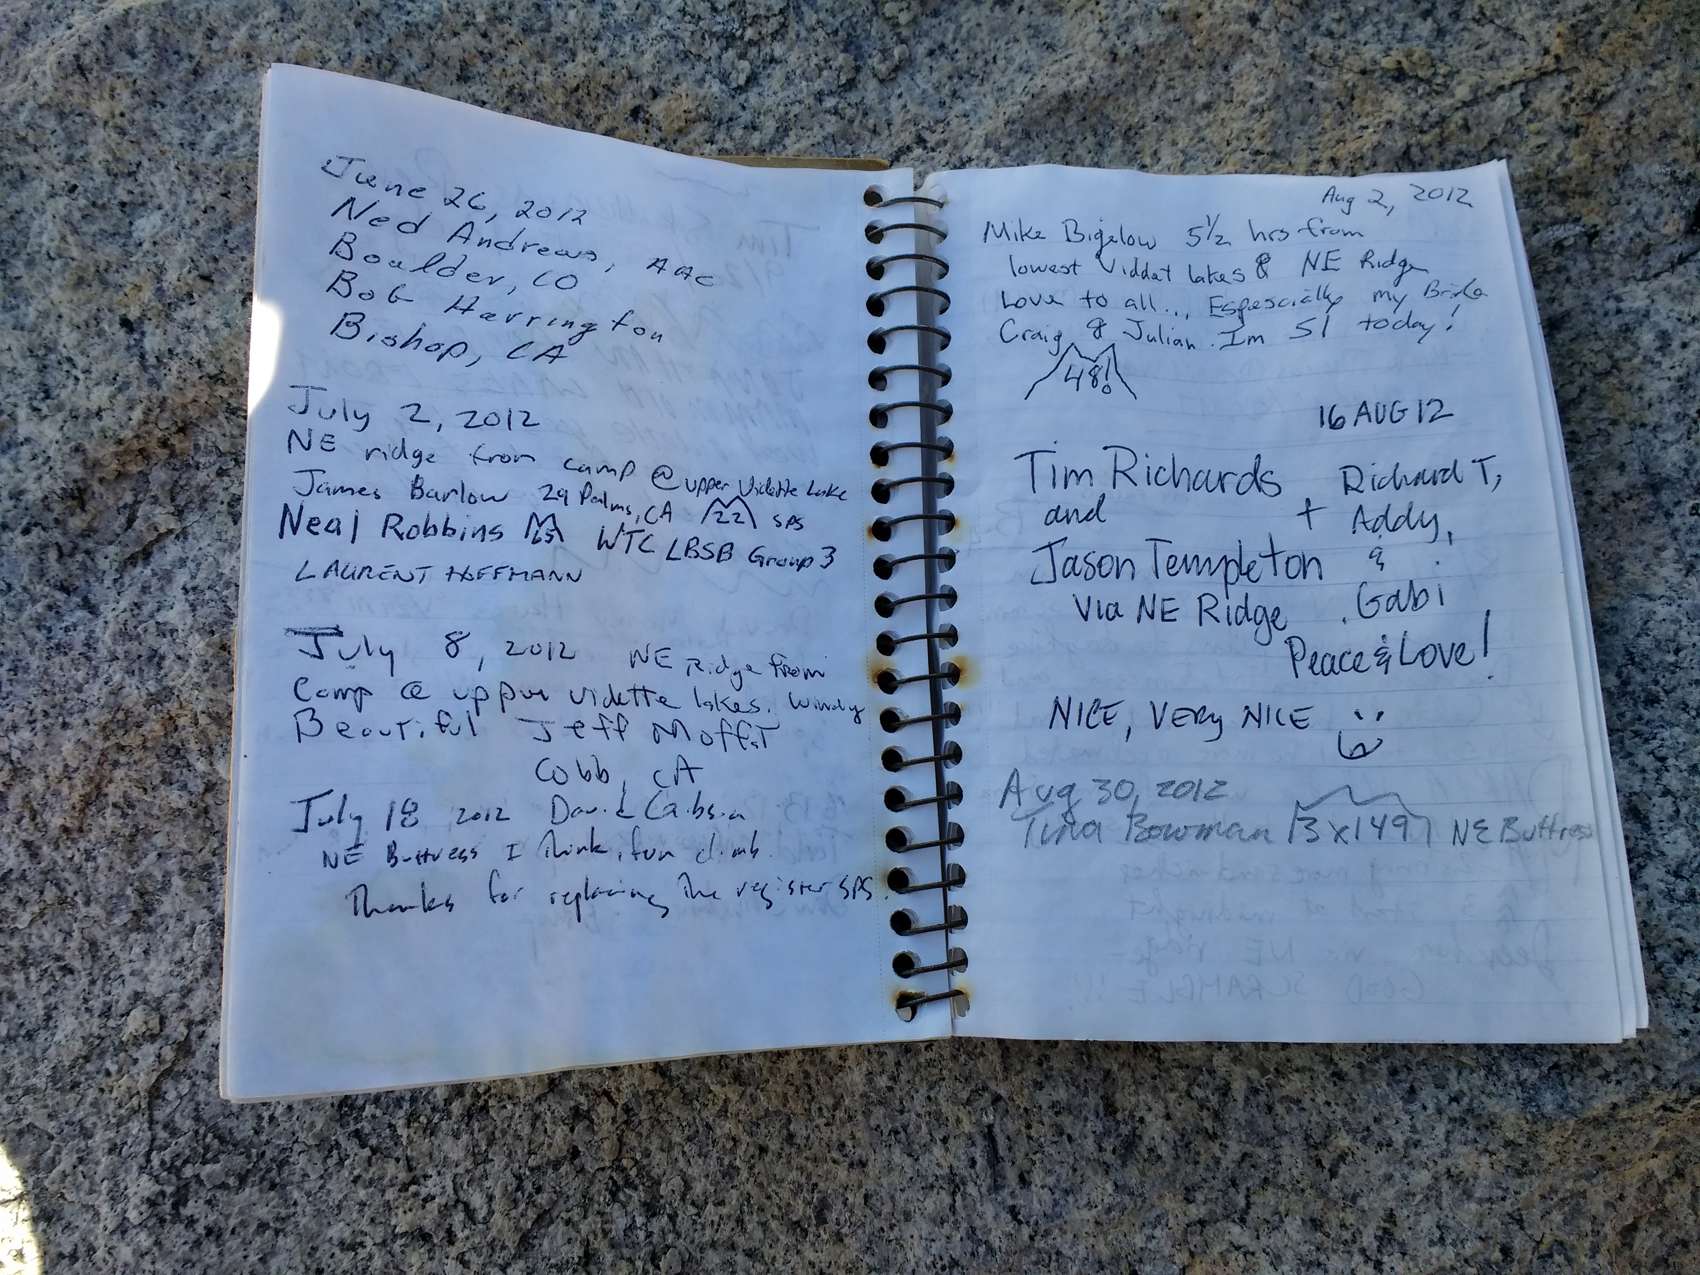 June 26, 2012
Ned Andrews, AAC
Boulder, CO
Bob Harrington
Bishop, CA
July 2, 2012
NE ridge from camp @ upper Vidette Lake
James Barlow 29 Palms, CA 22 SPS
Neal Robbins WTC LBSB Group 3
LAURENT HOFFMANN
July 8, 2012 NE Ridge from
Camp @ upper Vidette lakes. Windy
Beautiful Jeff Moffat
Cobb, CA
July 18 2012 David
NE Buttress I think, fun climb.
Thanks for replacing the register SPS.
Aug 2, 2012
Mike Bigelow 5½ hrs from
lowest Viddat lakes & NE Ridge
Love to all... Especially my Bride
Craig & Julian. Im 51 today!
48!
16 AUG 12
Tim Richards
and
Jason Templeton
Via NE Ridge
+ Richard T,
Addy,
&
Gabi
Peace & Love!
NICE, VERY NICE
Aug 30, 2012
Tina Bowman 3x149 NE Buttress